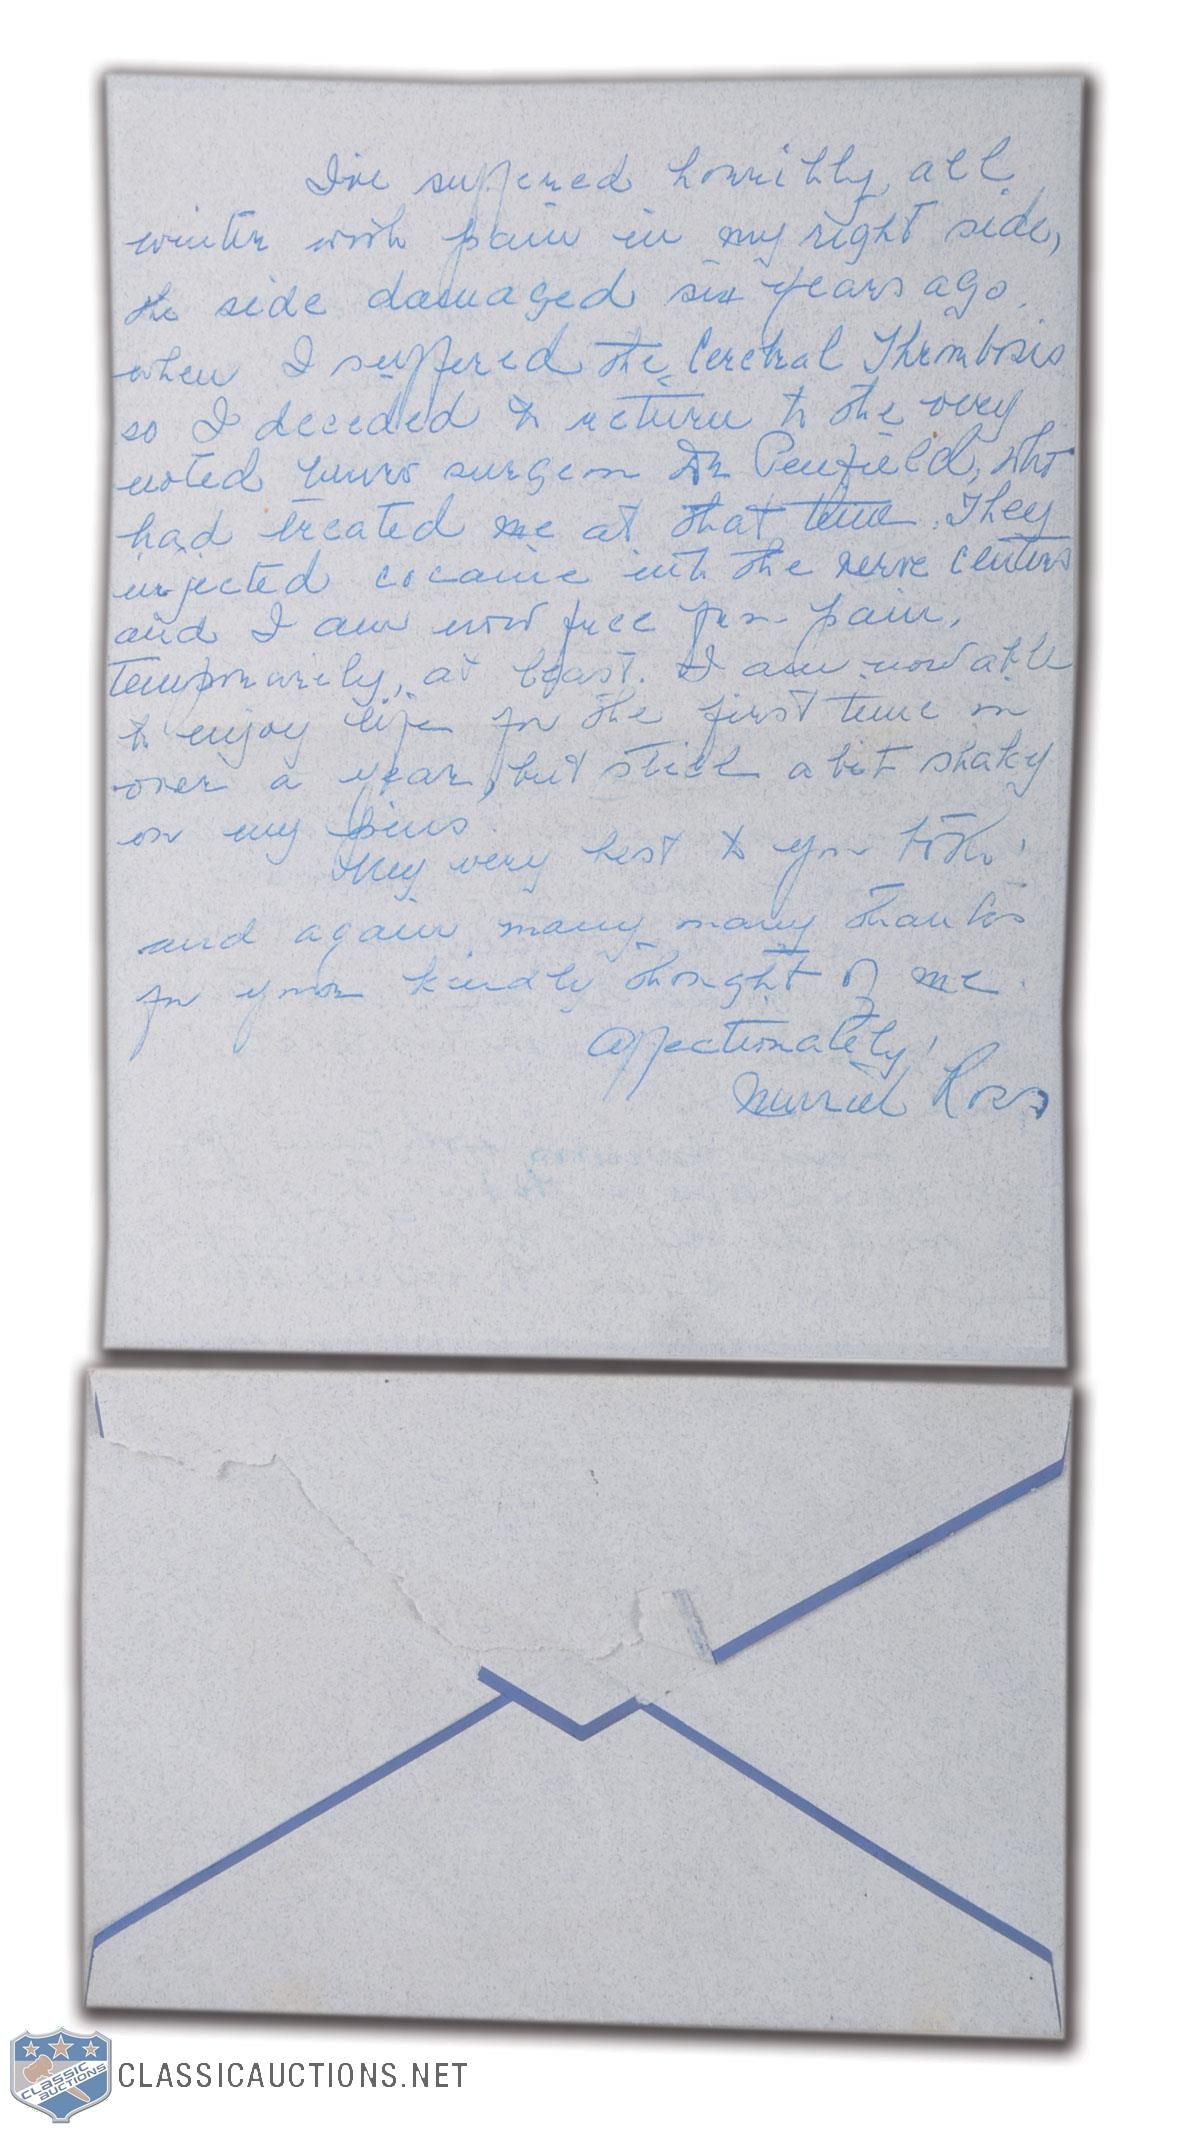 I've suffered horribly all
winter with pain in my right side,
the side damaged six years ago
when I suffered the Cerebral Thrombosis
so I decided to return to the very
noted neuro surgeon Dr Penfield, who
had treated me at that time. They
injected cocaine into the nerve centers
and I am now free from pain,
temporarily, at least. I am now able
to enjoy life for the first time in
over a year, but still a bit shaky
on my pins.
My very best to you both,
and again many, many thanks
for your kindly thought of me.
Affectionately,
Muriel Ross
CLASSIC
AUCTIONS
CLASSICAUCTIONS.NET